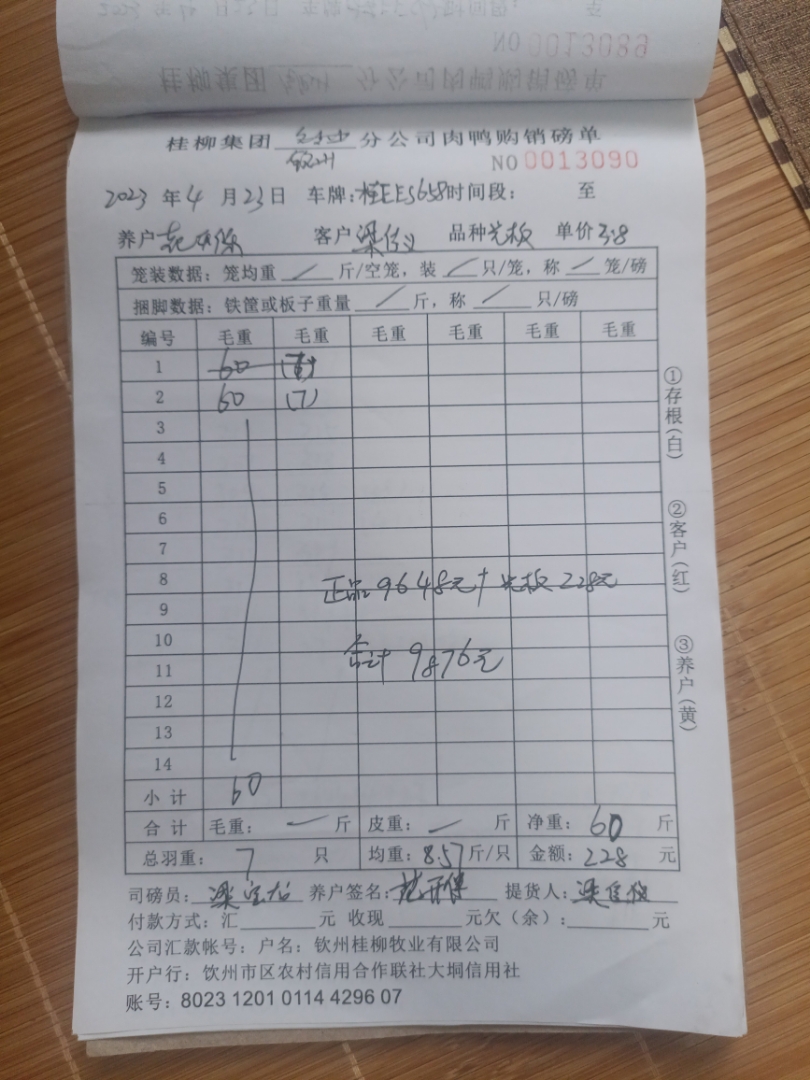 NO 0013089
桂柳集团 钦州 分公司肉鸭购销磅单
NO 0013090
2023 年 4 月 23 日 车牌:桂EE5658 时间段: 至
养户 客户 梁 品种 单价 3.8
笼装数据: 笼均重 / 斤/空笼, 装 / 只/笼, 称 / 笼/磅
捆脚数据: 铁筐或板子重量 / 斤, 称 / 只/磅
编号 毛重 毛重 毛重 毛重 毛重 毛重
1 60
2 60 (7)
3
4
5
6
7
8 正品 9648元 + 228元
9
10
11 合计 9876元
12
13
14
小计 60
合计 毛重: 一 斤 皮重: 一 斤 净重: 60 斤
总羽重: 7 只 均重: 8.57 斤/只 金额: 228 元
司磅员: 梁 养户签名: 提货人: 梁
付款方式: 汇 元 收现 元欠(余): 元
公司汇款帐号: 户名: 钦州桂柳牧业有限公司
开户行: 饮州市区农村信用合作联社大垌信用社
账号: 8023 1201 0114 4296 07
①存根(白)
②客户(红)
③养户(黄)